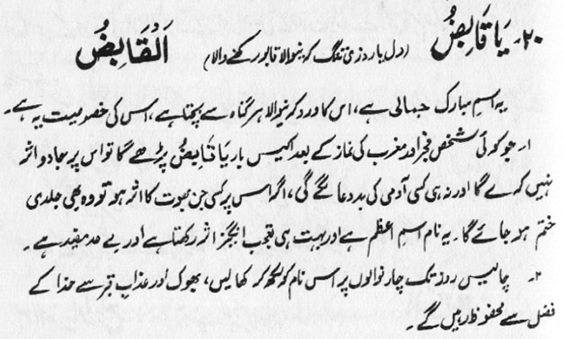 ۲۰۔ یَا قَابِضُ (دل یا روزی تنگ کرنیوالا قابو رکھنے والا) اَلْقَابِضُ
یہ اسم مبارک جمالی ہے، اس کا ورد کرنیوالا ہر گناہ سے بچتا ہے، اس کی خصوصیت یہ ہے۔
۱۔ جو کوئی شخص فجر اور مغرب کی نماز کے بعد اکیس بار یَا قَابِضُ پڑھے گا تو اس پر جادو اثر
نہیں کرے گا اور نہ ہی کسی آدمی کی بددعا لگے گی، اگر اس پر کسی جن بھوت کا اثر ہو تو وہ بھی جلدی
ختم ہو جائے گا۔ یہ نام اسم اعظم ہے اور بہت ہی تعجب انگیز اثر رکھتا ہے اور بے حد مفید ہے۔
۲۔ چالیس روز تک چار نوالوں پر اس نام کو لکھ کر کھا لیں، بھوک اور عذاب قبر سے خدا کے
فضل سے محفوظ رہیں گے۔